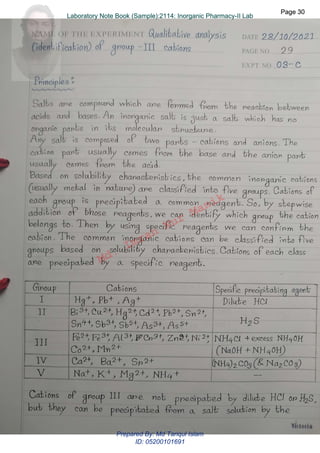 Page 30
Laboratory Note Book (Sample) 2114: Inorganic Pharmacy-II Lab
NAME OF THE EXPERIMENT Qualitative analysis DATE 23/10/2021
(identification) of group-III cations PAGE NO. 29
EXPT. NO. 03-C
Principles:
Salts are compound which are formed from the reaction between
acids and bases. An inorganic salt is just a salt which has no
organic parts in its molecular structure.
Any salt is composed of two parts - cations and anions. The
cation part usually comes from the base and the anion part
usually comes from the acid.
Based on solubility characteristics, the common inorganic cations
(usually metal in nature) are classified into five groups. Cations of
each group is precipitated a common reagent. So, by stepwise
addition of those reagents, we can identify which group the cation
belongs to. Then by using specific reagents we can confirm the
cation. The common inorganic cations can be classified into five
groups based on solubility characteristics. Cations of each class
are precipated by a specific reagent.
Group Cations Specific precipitating agent
I Hg+, Pb+, Ag+ Dilute HCl
II Bi3+, Cu2+, Hg2+, Cd2+, Pb2+, Sn2+,
Sn4+, Sb3+, Sb5+, As3+, As5+ H2S
III Fe2+, Fe3+, Al3+, Cr3+, Zn2+, Ni2+, NH4Cl + excess NH4OH
Co2+, Mn2+ (NaOH + NH4OH)
IV Ca2+, Ba2+, Sr2+ (NH4)2CO3 (& Na2CO3)
V Na+, K+, Mg2+, NH4+ —
Cations of group III are not precipated by dilute HCl or H2S,
but they can be precipitated from a salt solution by the
Prepared By: Md Tariqul Islam
ID: 05200101691